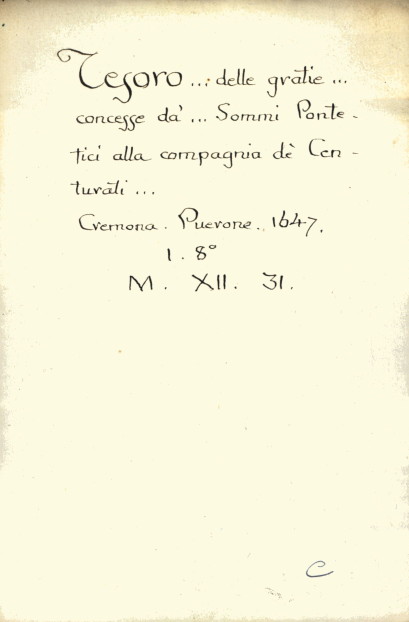 Tesoro ... delle gratie ...
concesse da' ... Sommi Ponte-
fici alla compagnia dè Cen-
turati ...
Cremona. Puerone. 1647.
1. 8°
M. XII. 31.
C